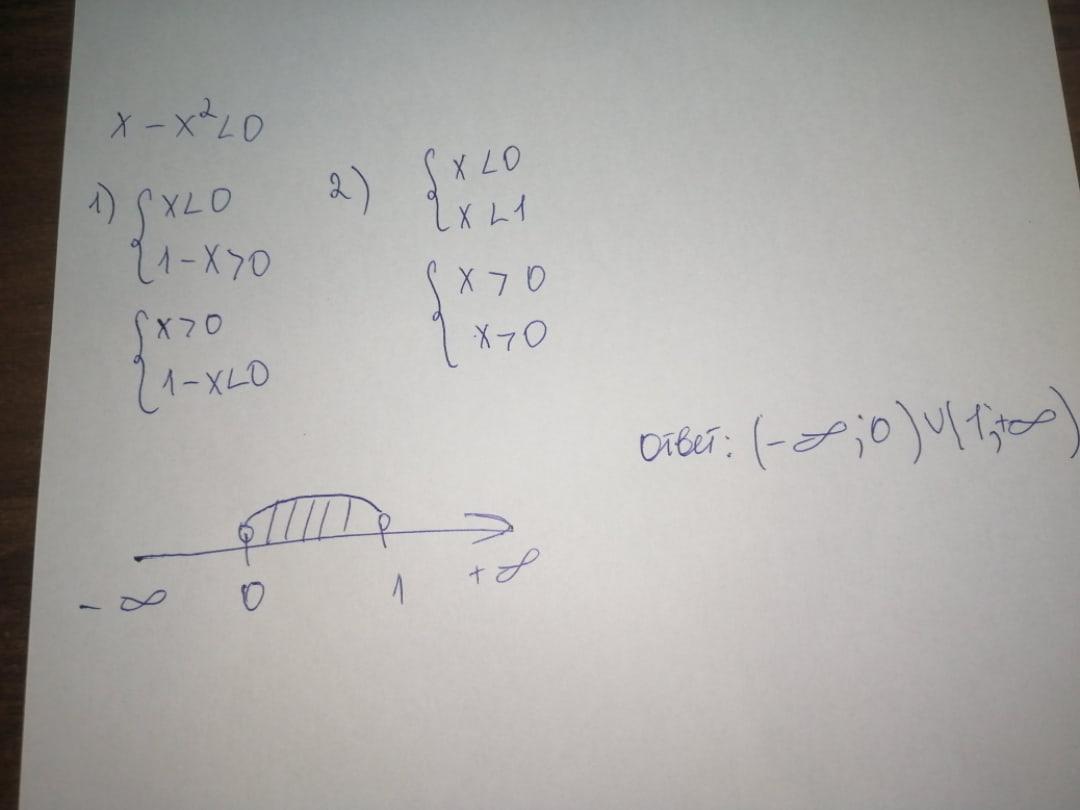 x - x² < 0
1) { x < 0
1 - x > 0
{ x > 0
1 - x < 0
2) { x < 0
x < 1
{ x > 0
x > 0
Ответ: (-∞; 0) ∪ (1; +∞)
-∞ 0 1 +∞